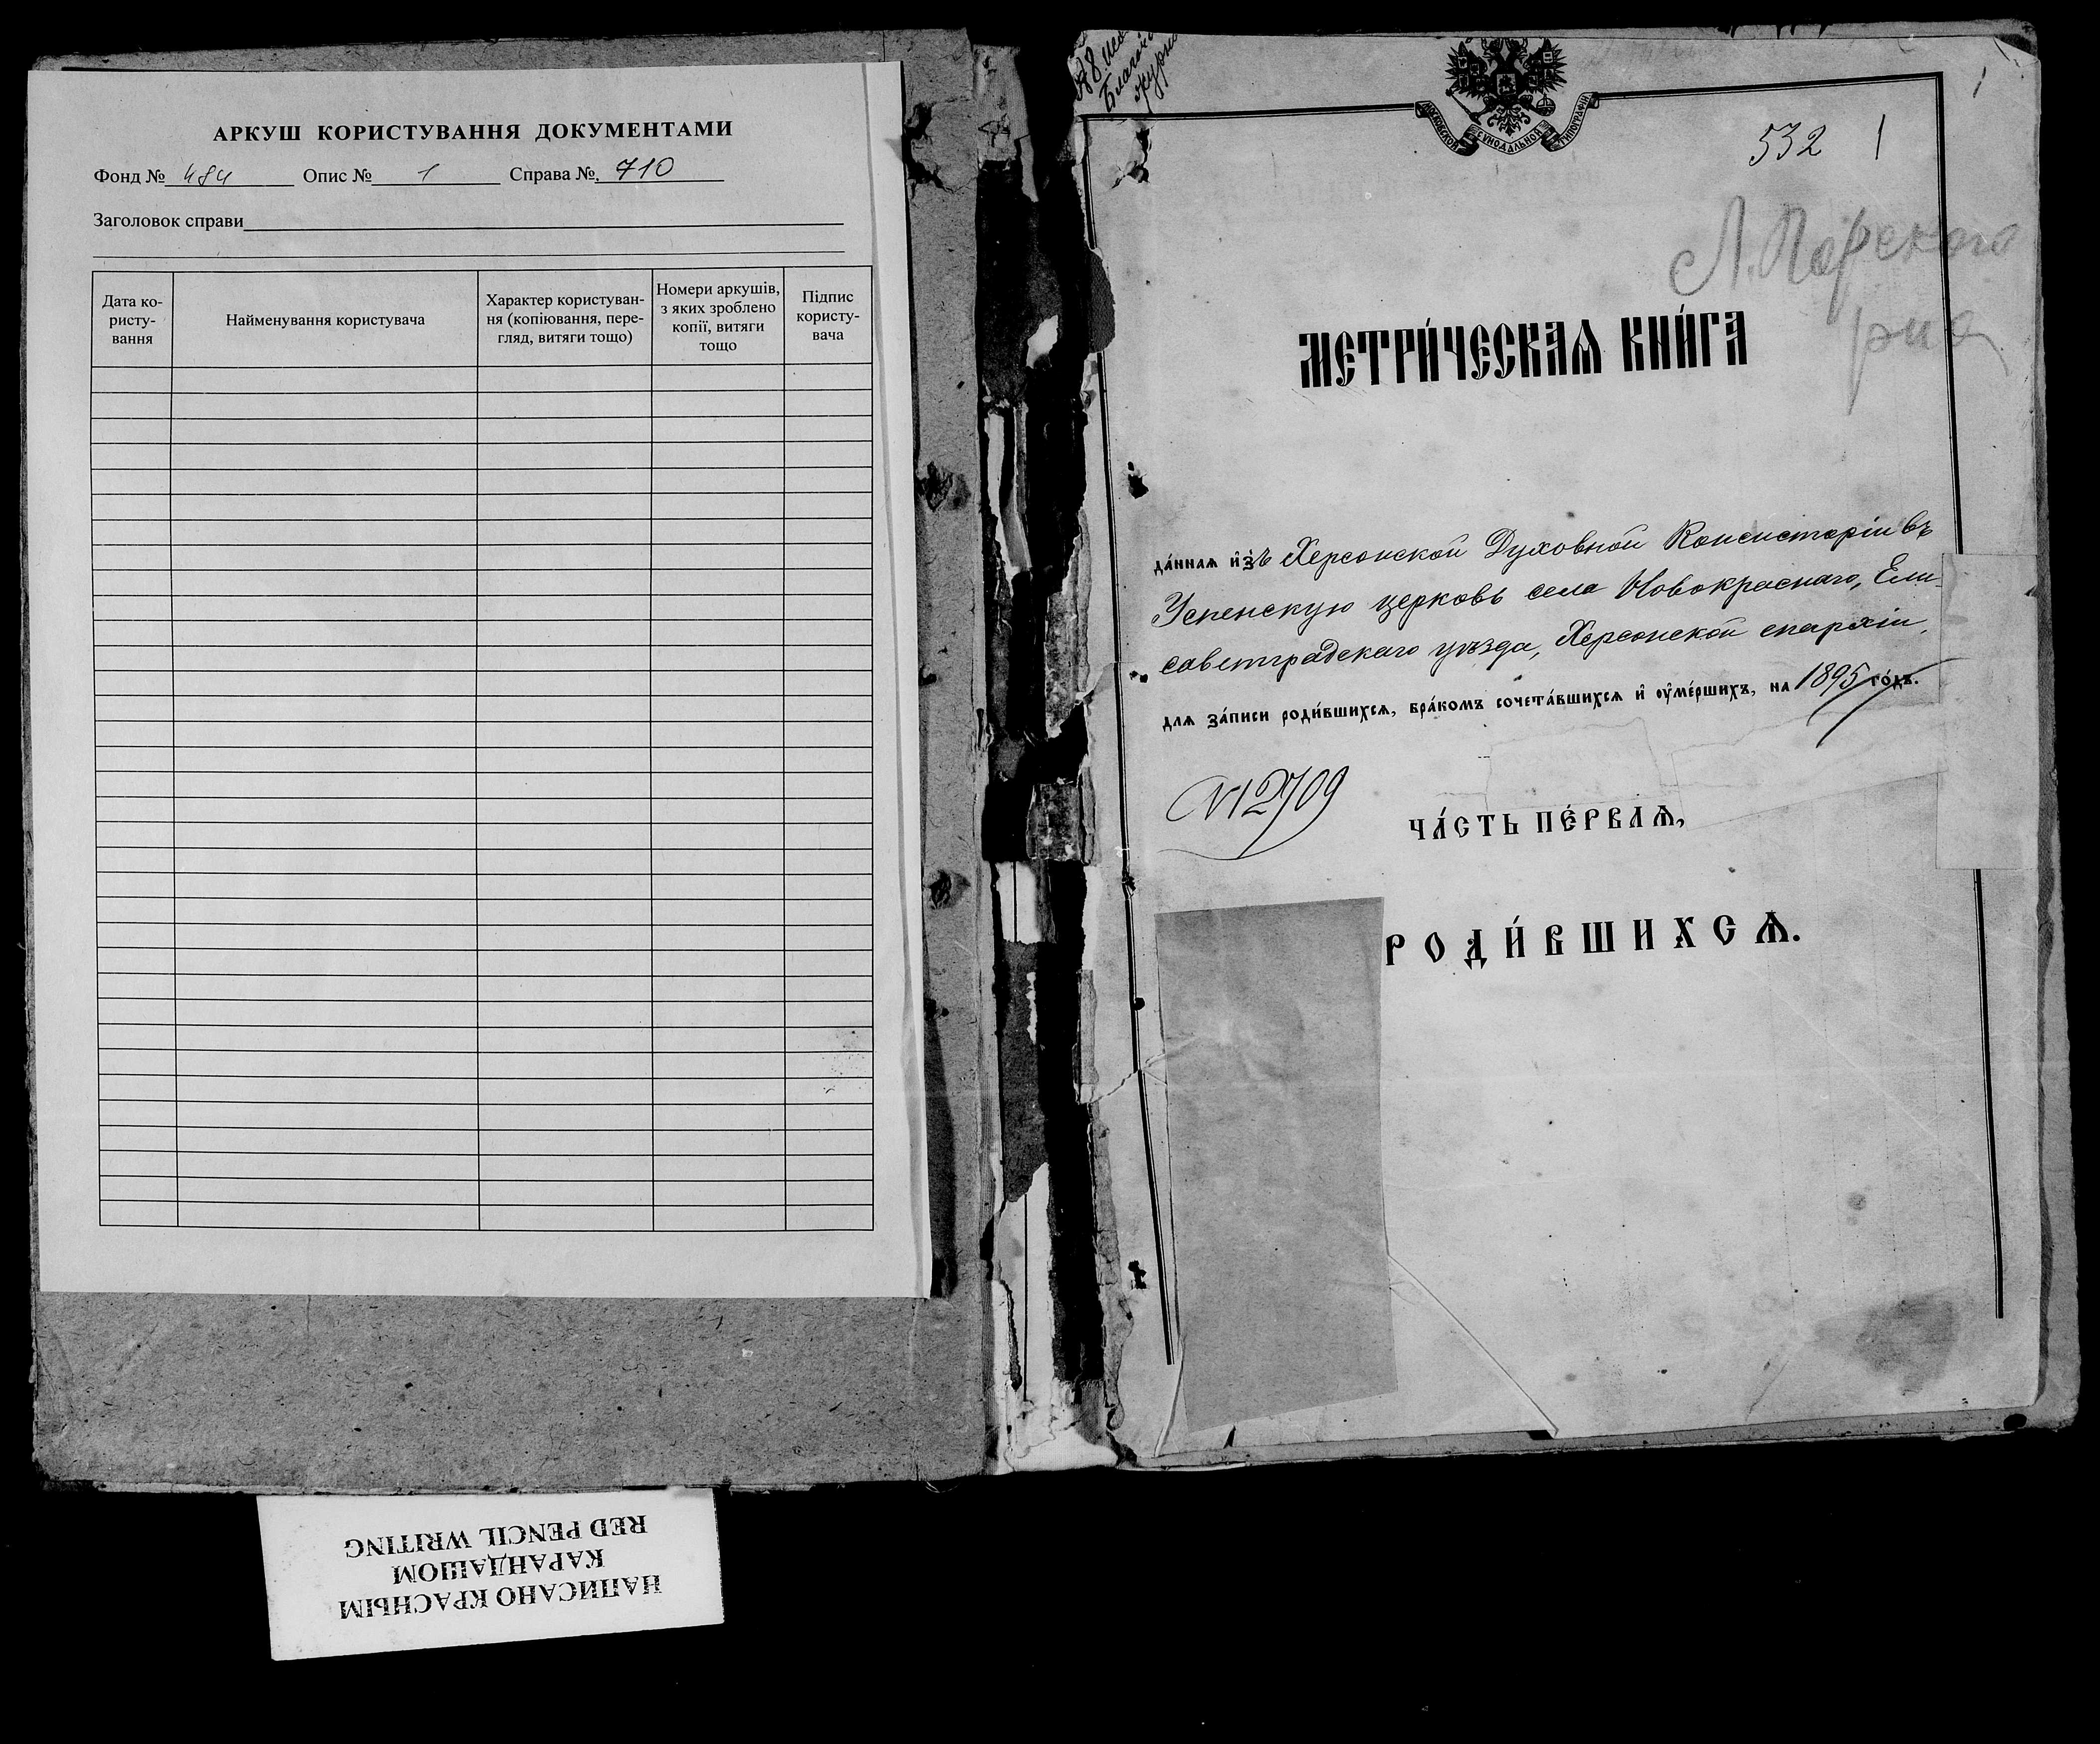 АРКУШ КОРИСТУВАННЯ ДОКУМЕНТАМИ
Фонд № 484 Опис № 1 Справа №. 710
Заголовок справи
Дата ко-
ристу-
вання
Найменування користувача
Характер користуван-
ня (копіювання, пере-
гляд, витяги тощо)
Номери аркушів,
з яких зроблено
копії, витяги
тощо
Підпис
користу-
вача
НАПИСАНО КРАСНЫМ
КАРАНДАШОМ
RED PENCIL WRITING
МОСКОВСКОЙ СѴНОДАЛЬНОЙ ТИПОГРАФІИ
1
532 1
МЕТРИ́ЧЕСКАѦ КНИ́ГА
да́ннаѧ и҆зъ Херсонской Духовной Консисторіи въ
Успенскую церковь села Новокраснаго, Ели-
саветградскаго уѣзда, Херсонской епархіи,
длѧ за́писи роди́вшихсѧ, бра́комъ сочета́вшихсѧ и҆ ѹ҆ме́ршихъ, на 1895 го́дъ.
№ 12709
ЧА́СТЬ ПЕ́РВАѦ,
РОДИ́ВШИХСѦ.